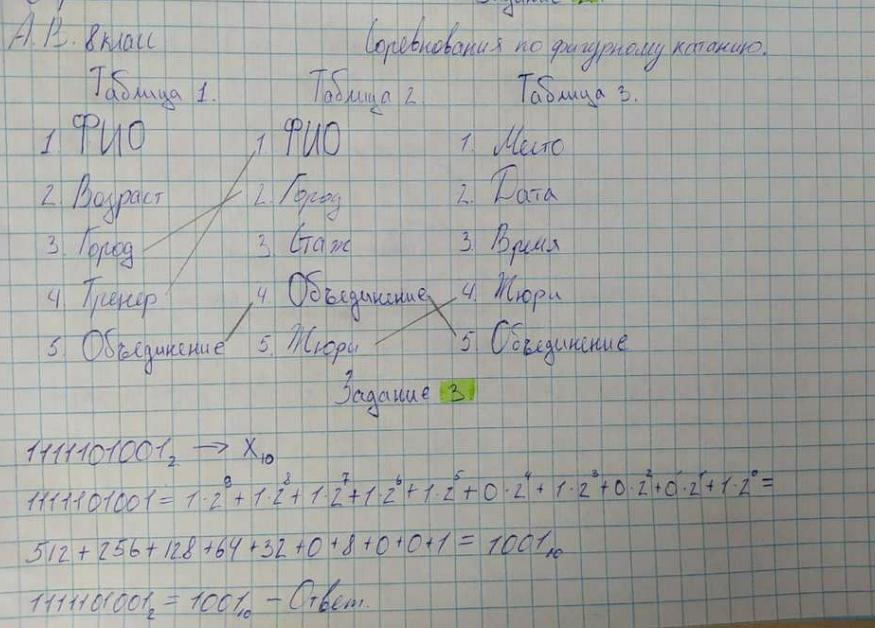 А.В. 8 класс Соревнования по фигурному катанию.
Таблица 1. Таблица 2. Таблица 3.
1. ФИО 1. ФИО 1. Место
2. Возраст 2. Город 2. Дата
3. Город 3. Стаж 3. Время
4. Тренер 4. Объединение 4. Жюри
5. Объединение 5. Жюри 5. Объединение
Задание 3
1111101001₂ → X₁₀
1111101001 = 1·2⁹ + 1·2⁸ + 1·2⁷ + 1·2⁶ + 1·2⁵ + 0·2⁴ + 1·2³ + 0·2² + 0·2¹ + 1·2⁰ =
512 + 256 + 128 + 64 + 32 + 0 + 8 + 0 + 0 + 1 = 1001₁₀
1111101001₂ = 1001₁₀ – Ответ.